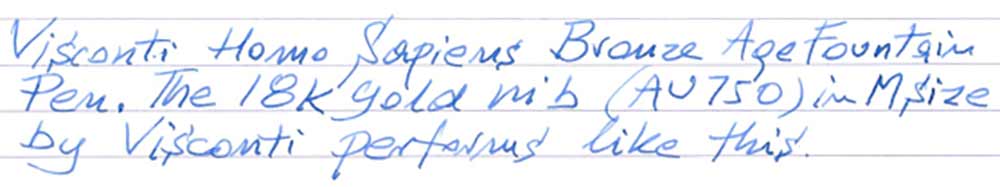 Visconti Homo Sapiens Bronze Age Fountain
Pen. The 18K gold nib (AU750) in M size
by Visconti performs like this.